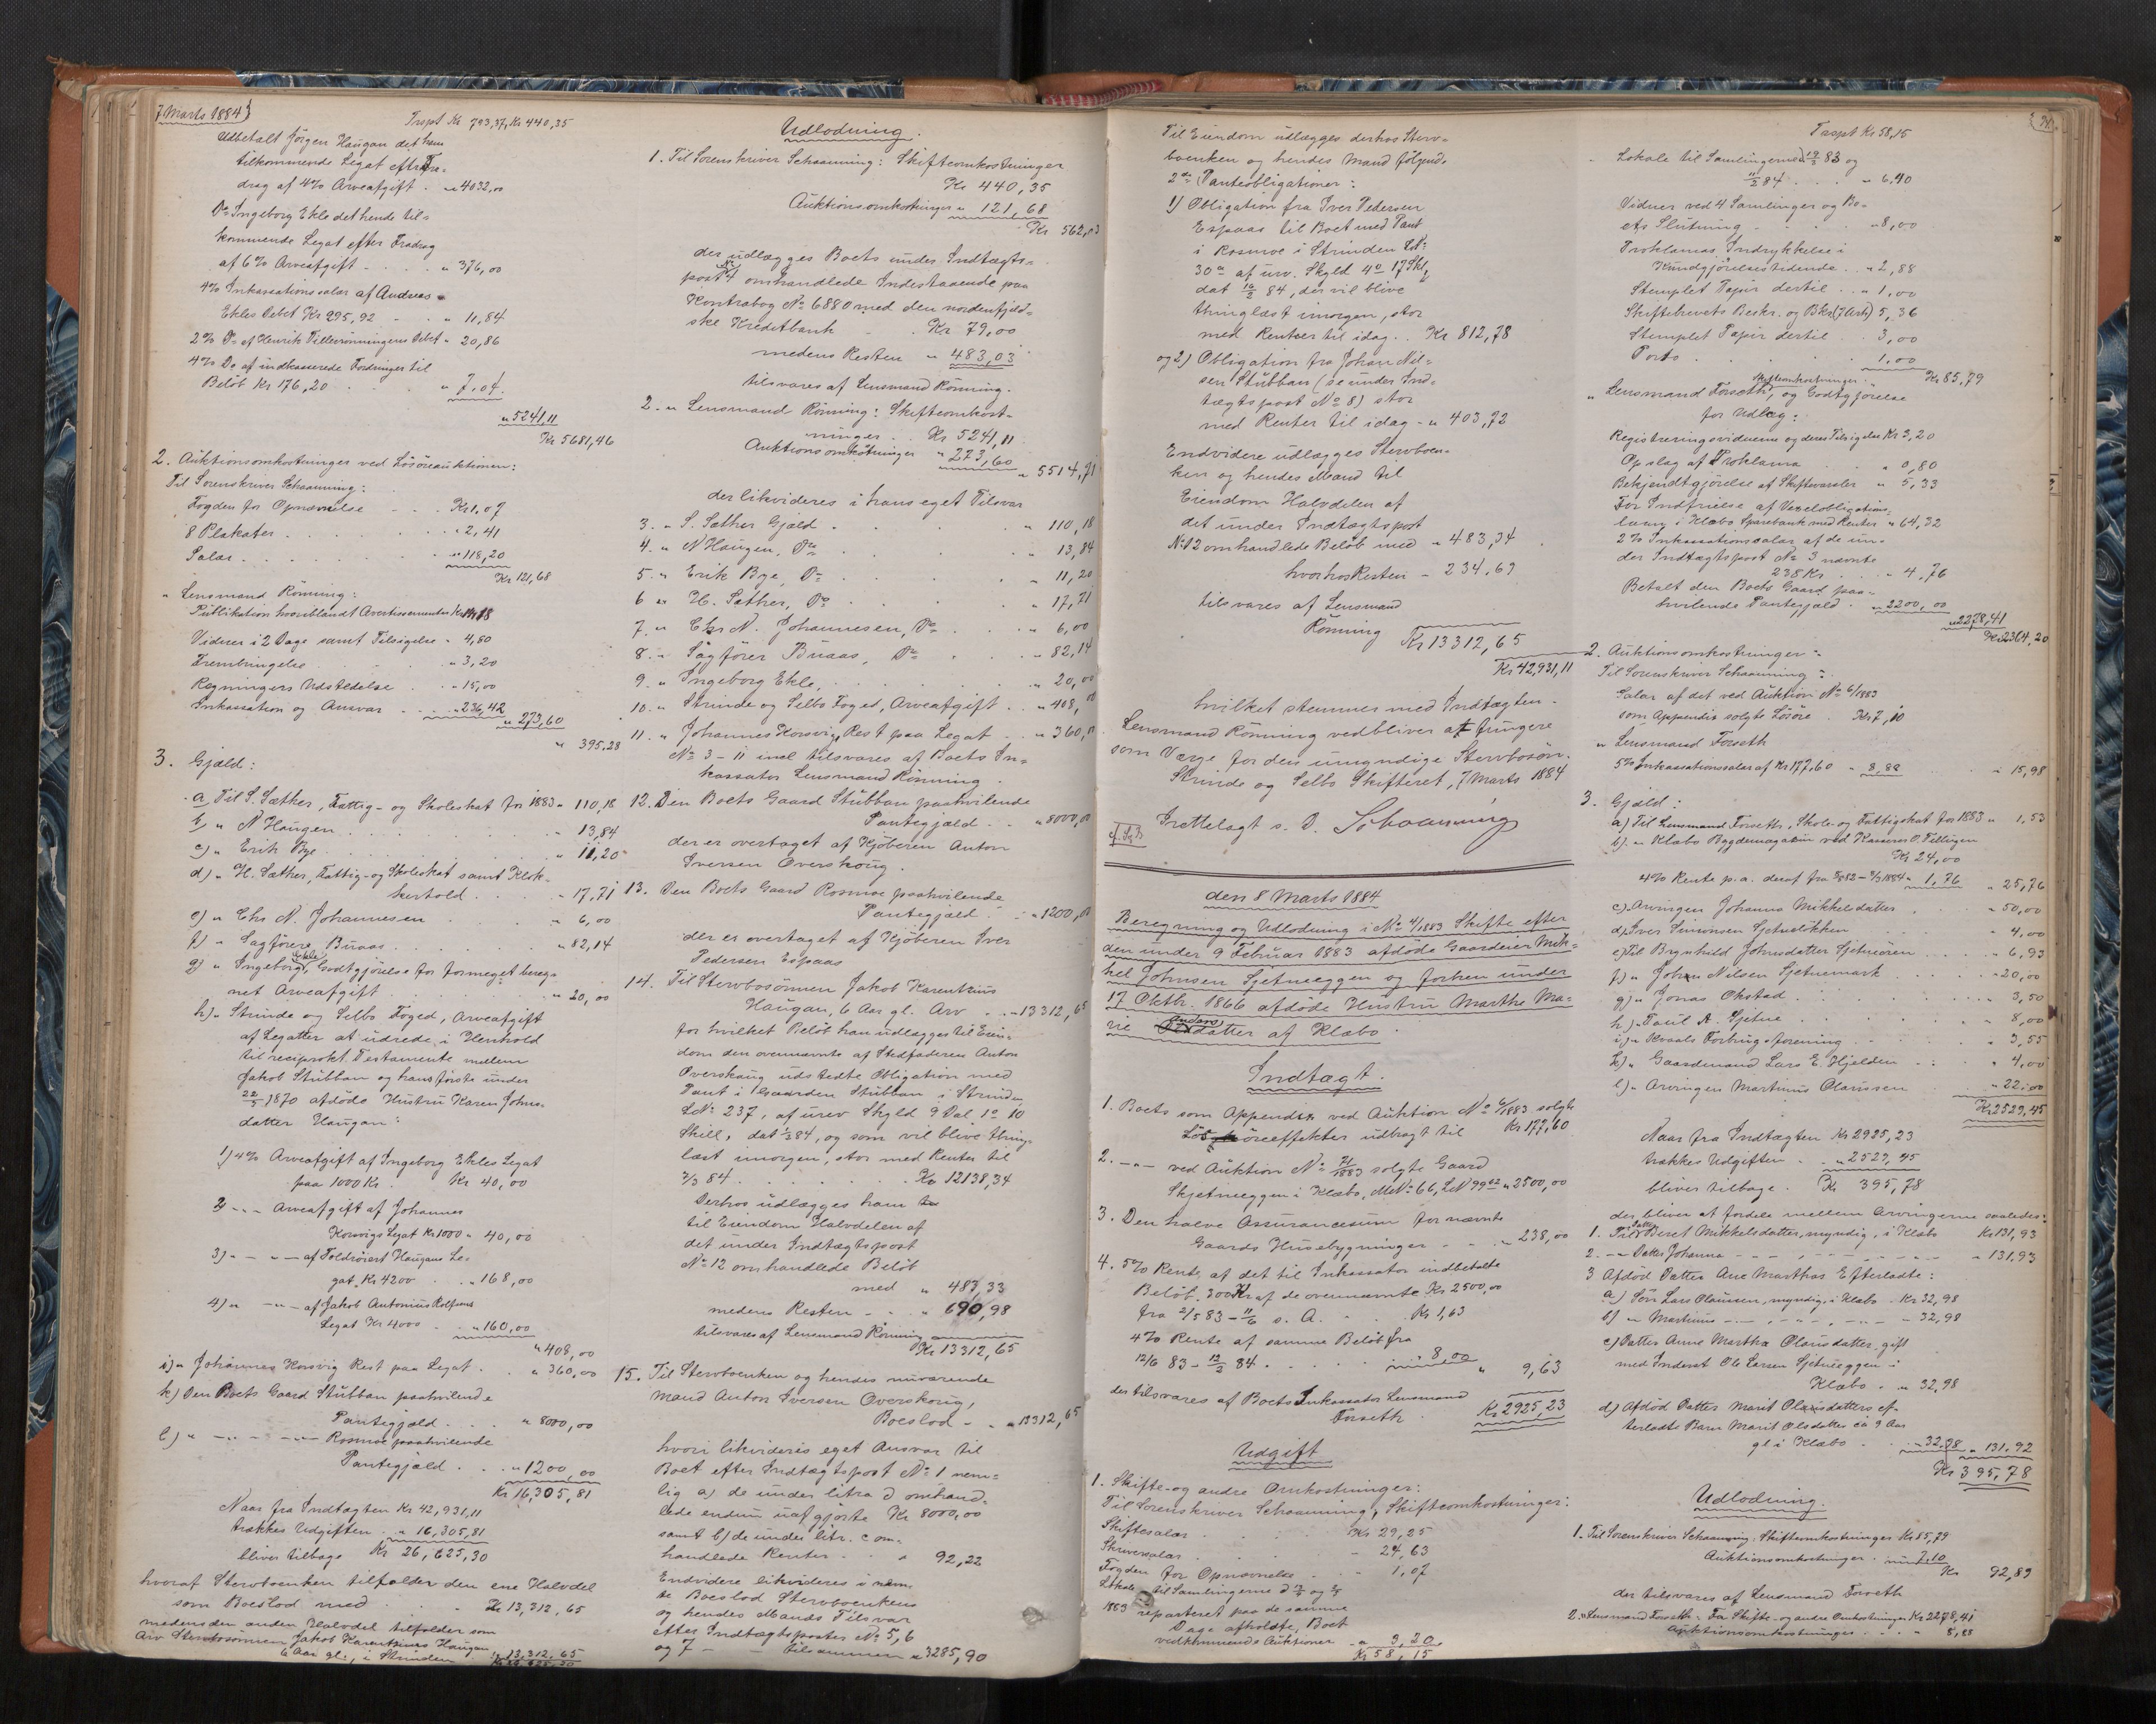 7 Marts 1884
Trspt Kr 793,37, Kr 440,35
Udbetalt Jörgen Haugan det ham
tilkommende Legat efter Fra-
drag af 4% Arveafgift . „ 4032,00
Do Ingeborg Ekle det hende til-
kommende Legat efter Fradrag
af 6% Arveafgift . . . „ 376,00
4% Inkassationssalær af Andreas
Ekles Debet Kr 295,92 - - „ 11,84
2% Do af Henrik Tillerönningens Debet „ 20,86
4% Do af indkasserede Fordringer til
Belöb Kr 176,20 . . „ 7,04
„ 5241,11
Kr 5681,46
2. Auktionsomkostninger ved Lösöreauktionen:
Til Sorenskriver Schaanning:
Fogden for Opnævnelse - - . Kr 1,07
8 Plakater . . . . . . „ 2,41
Salær . . . . . „ 118,20
Kr 121,68
„ Lensmand Rönning:
Publikation hvoriblandt Avertissementer Kr
Vidner i 2 Dage samt Tilsigelse „ 4,80
Frembringelse . . . „ 3,20
Regningers Udstedelse . . „ 15,00
Inkassation og Ansvar . . . „ 236,42
„ 273,60
„ 395,28
3. Gjæld:
a Til S. Sæther, Fattig- og Skoleskat for 1883 „ 110,18
b) „ N Haugen . . . . . „ 13,84
c) „ Erik Bye . . . . . „ 11,20
d) „ H. Sæther, Fattig- og Skoleskat samt Klok-
kertold . . . . „ 17,71
e) „ Chr N. Johannesen . . . „ 6,00
f) „ Sagförer Buaas . . . . „ 82,14
g) „ Ingeborg Ekle, Godtgjörelse for formeget bereg-
net Arveafgift . . . . . „ 20,00
h) „ Strinde og Selbo Foged, Arveafgift
af Legatter at udrede i Henhold
til reciprokt Testamente mellem
Jakob Stubban og hans förste under
22/5 1870 afdöde Hustru Karen Johns-
datter Haugan:
1) 4% Arveafgift af Ingeborg Ekles Legat
paa 1000 Kr. Kr 40,00
2) - „ - Arveafgift af Johannes
Korsvigs Legat Kr 1000 „ 40,00
3) „ - „ - af Toldröiert Haugans Le-
gat, Kr 4200 . . „ 168,00
4) „ - „ - af Jakob Antonius Rolfsens
Legat Kr 4000 . . „ 160,00
„ 408,00
i) „ Johannes Korsvig Rest paa Legat . „ 360,00
k) Den Boets Gaard Stubban paahvilende
Pantegjæld . . . „ 8000,00
l) „ - „ - „ - Rosmoe paahvilende
Pantegjæld . . . „ 1200,00
Kr 16,305,81
Naar fra Indtægten Kr 42,931,11
trækkes Udgiften . . „ 16,305,81
bliver tilbage Kr 26,625,30
hvoraf Stervboenken tilfalder den ene Halvdel
som Boeslod med . . . Kr 13,312,65
medens den anden Halvdel tilfalder som
Arv Stervbosönnen Jakob Karentzius Haugan
6 Aar gl:, i Strinden . „ 13,312,65
Kr 26,625,30
Udlodning.
1. Til Sorenskriver Schaanning: Skifteomkostninger
Kr 440,35
Auktionsomkostninger „ 121,68
Kr 562,03
der udlægges Boets under Indtægts-
post No 4 omhandlede Indestaaende paa
Kontrabog No 6880 med den nordenfjeld-
ske Kreditbank - Kr 79,00
medens Resten „ 483,03
tilsvares af Lensmand Rönning.
2. „ Lensmand Rönning: Skifteomkost-
ninger . . Kr 5241,11
Auktionsomkostninger „ 273,60
„ 5514,71
der likvideres i hans eget Tilsvar
3. „ S. Sæther Gjæld . . . . „ 110,18
4. „ N Haugen, Do . . . . „ 13,84
5. „ Erik Bye, Do . . . . „ 11,20
6 „ H. Sæther, Do . . . . „ 17,71
7. „ Chr N. Johannesen, Do . . . „ 6,00
8. „ Sagförer Buaas, Do . . . „ 82,14
9. „ Ingeborg Ekle, . . . . „ 20,00
10. „ Strinde og Selbo Foged, Arveafgift . . „ 408,00
11. „ Johannes Korsvig, Rest paa Legat . . „ 360,00
No 3 - 11 incl tilsvares af Boets In-
kassator Lensmand Rönning.
12. Den Boets Gaard Stubban paahvilende
Pantegjæld . . „ 8000,00
der er overtaget af Kjöberen Anton
Iversen Overskoug.
13. Den Boets Gaard Rosmoe paahvilende
Pantegjæld . . „ 1200,00
der er overtaget af Kjöberen Iver
Pedersen Espaas
14. Til Stervbosönnen Jakob Karentzius
Haugan, 6 Aar gl. Arv . . „ 13312,65
for hvilket Belöb han udlægges til Eien-
dom den ovennævnte af Stedfaderen Anton
Overskaug udstedte Obligation med
Pant i Gaarden Stubban i Strinden
LNo 237, af urev Skyld 9 Dal 1o 10
Skill, dat 1/3 84, og som vil blive thing-
læst imorgen, stor med Renter til
7/3 84 . . . . . Kr 12138,34
Derhos udlægges ham
til Eiendom Halvdelen af
det under Indtægtspost
No 12 omhandlede Belöb
med „ 483,33
medens Resten - . „ 690,98
tilsvares af Lensmand Rönning
Kr 13312,65
15. Til Stervboenken og hendes nuværende
Mand Anton Iversen Overskoug,
Boeslod - . „ 13312,65
hvori likvideres eget Ansvar til
Boet efter Indtægtspost No 1 nem-
lig a) de under litra d omhand-
lede endnu uafgjorte Kr 8000,00
samt b) de under litr. c om-
handlede Renter . . „ 92,22
Endvidere likvideres i nævn-
te Boeslod Stervboenkens
og hendes Mands Tilsvar
efter Indtægtsposter No 5, 6
og 7 - - tilsammen „ 3285,90
Til Eiendom udlægges derhos Sterv-
boenken og hendes Mand fölgende
2de Panteobligationer:
1) Obligation fra Iver Pedersen
Espaas til Boet med Pant
i Rosmoe i Strinden LN:
30a af urv. Skyld 4o 17 Skl,
dat 19/2 84, der vil blive
thinglæst imorgen, stor
med Renter til idag . . Kr 812,78
og 2) Obligation fra Johan Nil-
sen Stubban (se under Ind-
tægtspost No 8) stor
med Renter til idag - „ 403,72
Endvidere udlægges Stervboen-
ken og hendes Mand til
Eiendom Halvdelen af
det under Indtægtspost
No 12 omhandlede Belöb med „ 483,34
hvorhos Resten - 234,69
tilsvares af Lensmand
Rönning
Kr 13312,65
Kr 42,931,11
hvilket stemmer med Indtægten.
Lensmand Rönning vedbliver at fungere
som Værge for den umyndige Stervbosön.
Strinde og Selbo Skifteret, 7 Marts 1884
Irettelagt s. D. Schaanning
den 8 Marts 1884
Beregning og Udlodning i No 4/1883 Skifte efter
den under 9 Februar 1883 afdöde Gaardeier Mik-
kel Johnsen Sjetneeggen og forhen under
17 Oktb. 1866 afdöde Hustru Marthe Ma-
rie Andersdatter af Klæbo.
Indtægt.
1. Boets som Appendix ved Auktion No 6/1883 solgte
Lösöreeffekter udbragt til Kr 177,60
2. - „ - ved Auktion No 21/1883 solgte Gaard
Skjetneeggen i Klæbo, MNo 66, LN 99 „ 2500,00
3. Den halve Assurancesum for nævnte
Gaards Husebygninger - - . „ 238,00
4. 5% Rente af det til Inkassator indbetalte
Belöb 300 Kr af de ovennævnte Kr 2500,00
fra 2/5 83 - 11/6 s. A. . . Kr 1,63
4% Rente af samme Belöb fra
12/6 83 - 12/2 84 . . . . . „ 8,00
„ 9,63
der tilsvares af Boets Inkassator Lensmand
Forseth . Kr 2925,23
Udgift
1. Skifte- og andre Omkostninger:
Til Sorenskriver Schaanning, Skifteomkostninger:
Skiftesalær . . . Kr 29,25
Skriversalær . . . - 24,63
Fogden for Opnævnelse . . - 1,07
Lokale til Samlingerne
1883 reparteret paa de samme
Dage afholdte, Boet
vedkommende Auktioner . „ 3,20
Kr 58,15
Trspt Kr 58,15
Lokale til Samlingerne 19/3 83 og
11/2 84 . . . „ 6,40
Vidner ved 4 Samlinger og Bo-
ets Slutning - . . „ 8,00
Proklamas Indrykkelse i
Kundgjörelsestidende . . „ 2,88
Stemplet Papir dertil . . „ 1,00
Skiftebrevets Beskr. og Bkr (7 Ark) 5,36
Stemplet Papir dertil . . 3,00
Porto . . . . 1,00
Kr 85,79
„ Lensmand Forseth, Skifteomkostninger og Godtgjörelse
for Udlæg:
Registreringsvidnerne og deres Tilsigelse Kr 3,20
Opslag af Proklama . . „ 0,80
Bekjendtgjörelse af Skiftesamler „ 5,33
For Indfrielse af Vexelobligations-
laan i Klæbo Sparebank med Renter „ 64,32
2% Inkassationssalær af de un-
der Indtægtspost No 3 nævnte
238 Kr . . . „ 4,76
Betalt den Boets Gaard paa-
hvilende Pantegjæld . „ 2200,00
„ 2278,41
Kr 2364,20
2. Auktionsomkostninger:
Til Sorenskriver Schaanning:
Salær af det ved Auktion No 6/1883
som Appendix solgte Lösöre . Kr 7,10
„ Lensmand Forseth
5% Inkassationssalær af Kr 177,60 „ 8,88
„ 15,98
3. Gjæld:
a) Til Lensmand Forseth, Skole- og Fattigskat for 1883 „ 1,53
b) „ Klæbo Bygdemagasin ved Kasserer O. Tillugen
Kr 24,00
4% Rente p. a. deraf fra - 8/3 1884 „ 1,76
„ 25,76
c) Arvingen Johanna Mikkelsdatter . „ 50,00
d) Iver Simonsen Sjetneløkken . . „ 4,00
e) Til Brynhild Johnsdatter Sjetneören . . . „ 6,93
f) „ Johan Nilsen Sjetnemark . . . . „ 20,00
g) „ Jonas Okstad . . . . . „ 3,50
h) „ Paul A. Sjetne . . . . . „ 8,00
i) „ Kvaals Forbrugsforening . . . „ 3,55
k) „ Gaardmand Lars E. Hjelden . . . „ 4,00
l) „ Arvingen Martinus Olaussen . . „ 22,00
Kr 2529,45
Naar fra Indtægten Kr 2925,23
trækkes Udgiften . . „ 2529,45
bliver tilbage . Kr 395,78
der bliver at fordele mellem Arvingerne saaledes:
1. Til Datter Beret Mikkelsdatter, myndig, i Klæbo Kr 131,93
2. - „ - Datter Johanna - - - „ 131,93
3 Afdöd Datter Ane Marthas Efterladte:
a) Sön Lars Olaussen, myndig, i Klæbo - Kr 32,98
b) „ Martinus - „ - „ - - 32,98
c) Datter Anne Martha Olausdatter, gift
med Inderst Ole Larsen Sjetneeggen i
Klæbo . „ 32,98
d) Afdöd Datter Marit Olausdatters ef-
terladte Barn Marit Olsdatter ca 9 Aar
gl i Klæbo . . „ 32,98 „ 131,92
Kr 395,78
Udlodning.
1. Til Sorenskriver Schaanning, Skifteomkostninger Kr 85,79
Auktionsomkostninger . „ 7,10
Kr 92,89
der tilsvares af Lensmand Forseth
2. Lensmand Forseth: For Skifte- og andre Omkostninger Kr 2278,41
Auktionsomkostninger . . . „ 8,88